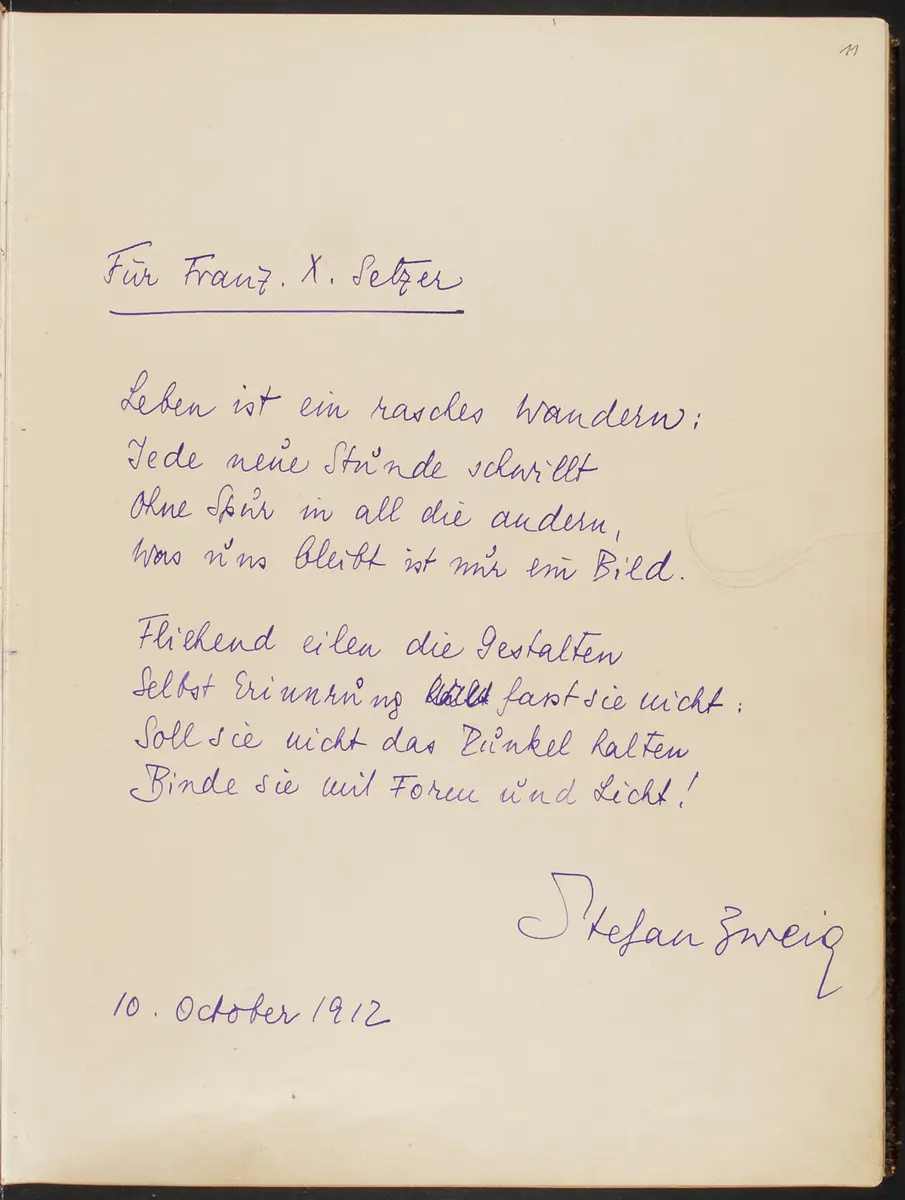 11
Für Franz. X. Setzer
Leben ist ein rasches Wandern:
Jede neue Stunde schwillt
Ohne Spur in all die andern,
Was uns bleibt ist nur ein Bild.
Fliehend eilen die Gestalten
Selbst Erinnrung fasst sie nicht:
Soll sie nicht das Dunkel halten
Binde sie mit Formen und Licht!
Stefan Zweig
10. October 1912